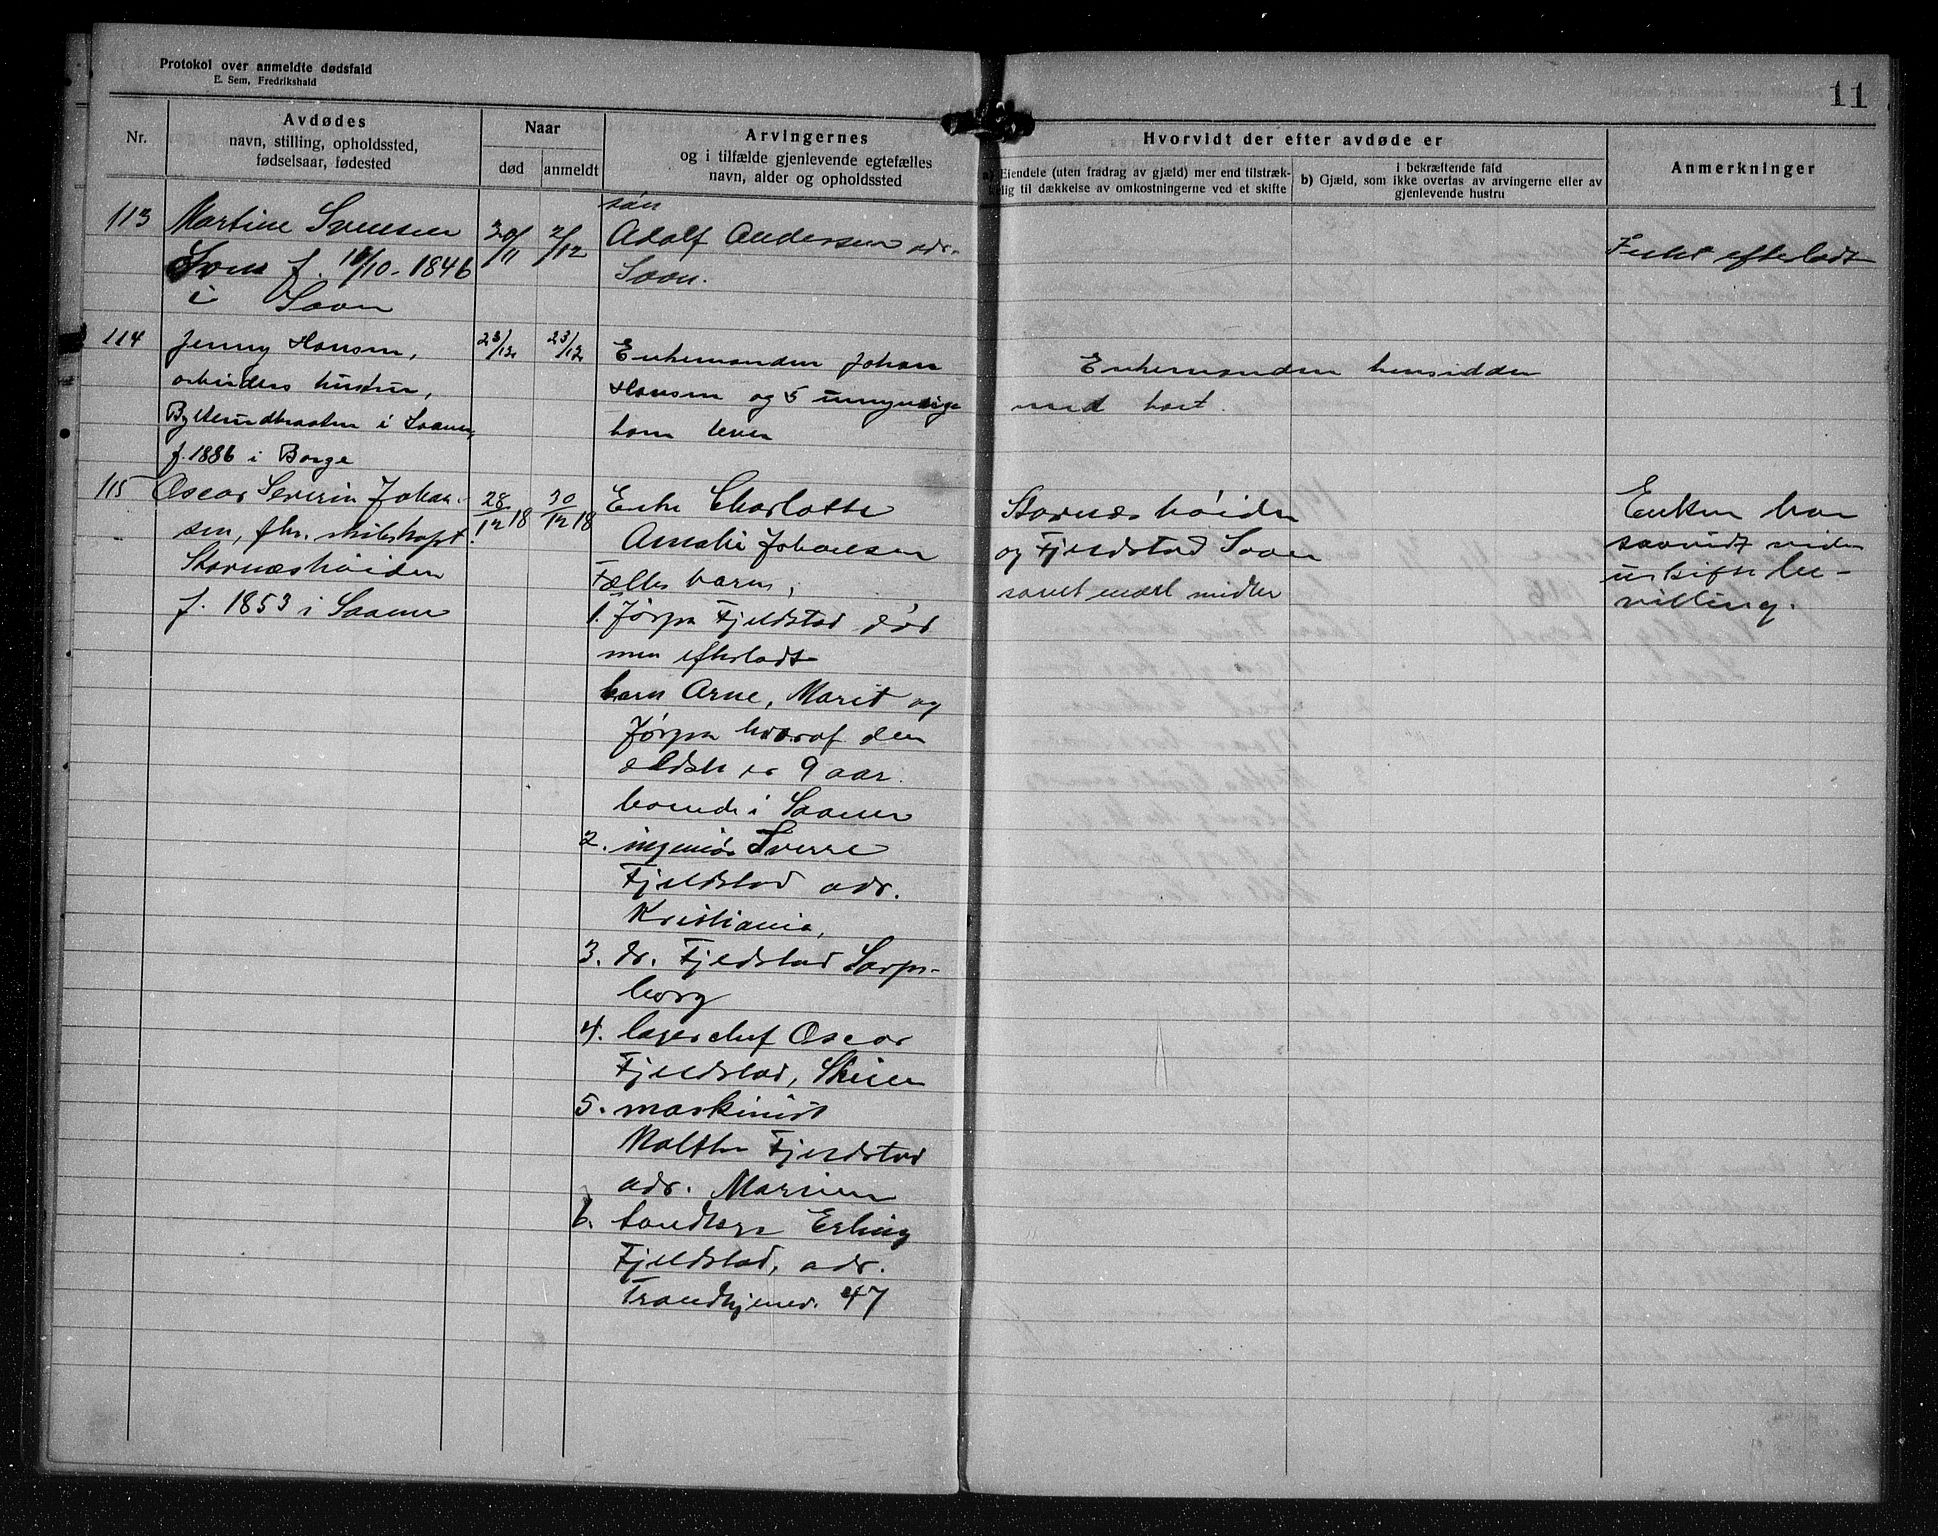 Protokol over anmeldte dødsfald
E. Sem, Fredrikshald
11
Nr.
Avdødes
navn, stilling, opholdssted,
fødselsaar, fødested
Naar
død
anmeldt
Arvingernes
og i tilfælde gjenlevende egtefælles
navn, alder og opholdssted
Hvorvidt der efter avdøde er
a) Eiendele (uten fradrag av gjæld) mer end tilstræk-
kelig til dækkelse av omkostningerne ved et skifte
i bekræftende fald
b) Gjæld, som ikke overtas av arvingerne eller av
gjenlevende hustru
Anmerkninger
113
Martine Svensen
f. 18/10-1846
i Soon
30/11
2/12
søn
Adolf Andersen adr.
Soon.
Intet efterladt
114
Jenny Hansen,
arbeiders hustru,
i Saaner,
f. 1886 i Borge
23/12
23/12
Enkemanden Johan
Hansen og 5 umyndige
barn lever
Enkemanden hensidder
med boet.
115
Oscar Severin Johan-
sen, fhv. skibskapt.
Stornæshöiden
f. 1853 i Saaner
28/12 18
30/12 18
Enke Charlotte
Amalie Johansen
Fælles barn,
1. Jörgen Fjeldstad död
men efterladt
barn Arne, Marit og
Jörgen hvoraf den
eldste er 9 aar.
boende i Saaner
2. ingeniör Sverre
Fjeldstad adr.
Kristiania,
3. dr. Fjeldstad Sarps-
borg
4. lagerchef Oscar
Fjeldstad, Skien
5. maskinist
Malthe Fjeldstad
adr. Marinen
6. tandlæge Erling
Fjeldstad, adr.
Trondhjemsv. 47
Stornæshöiden
og Fjeldstad Soon
samt endel midler
Enken har
saavidt vides
uskiftebe-
villing.